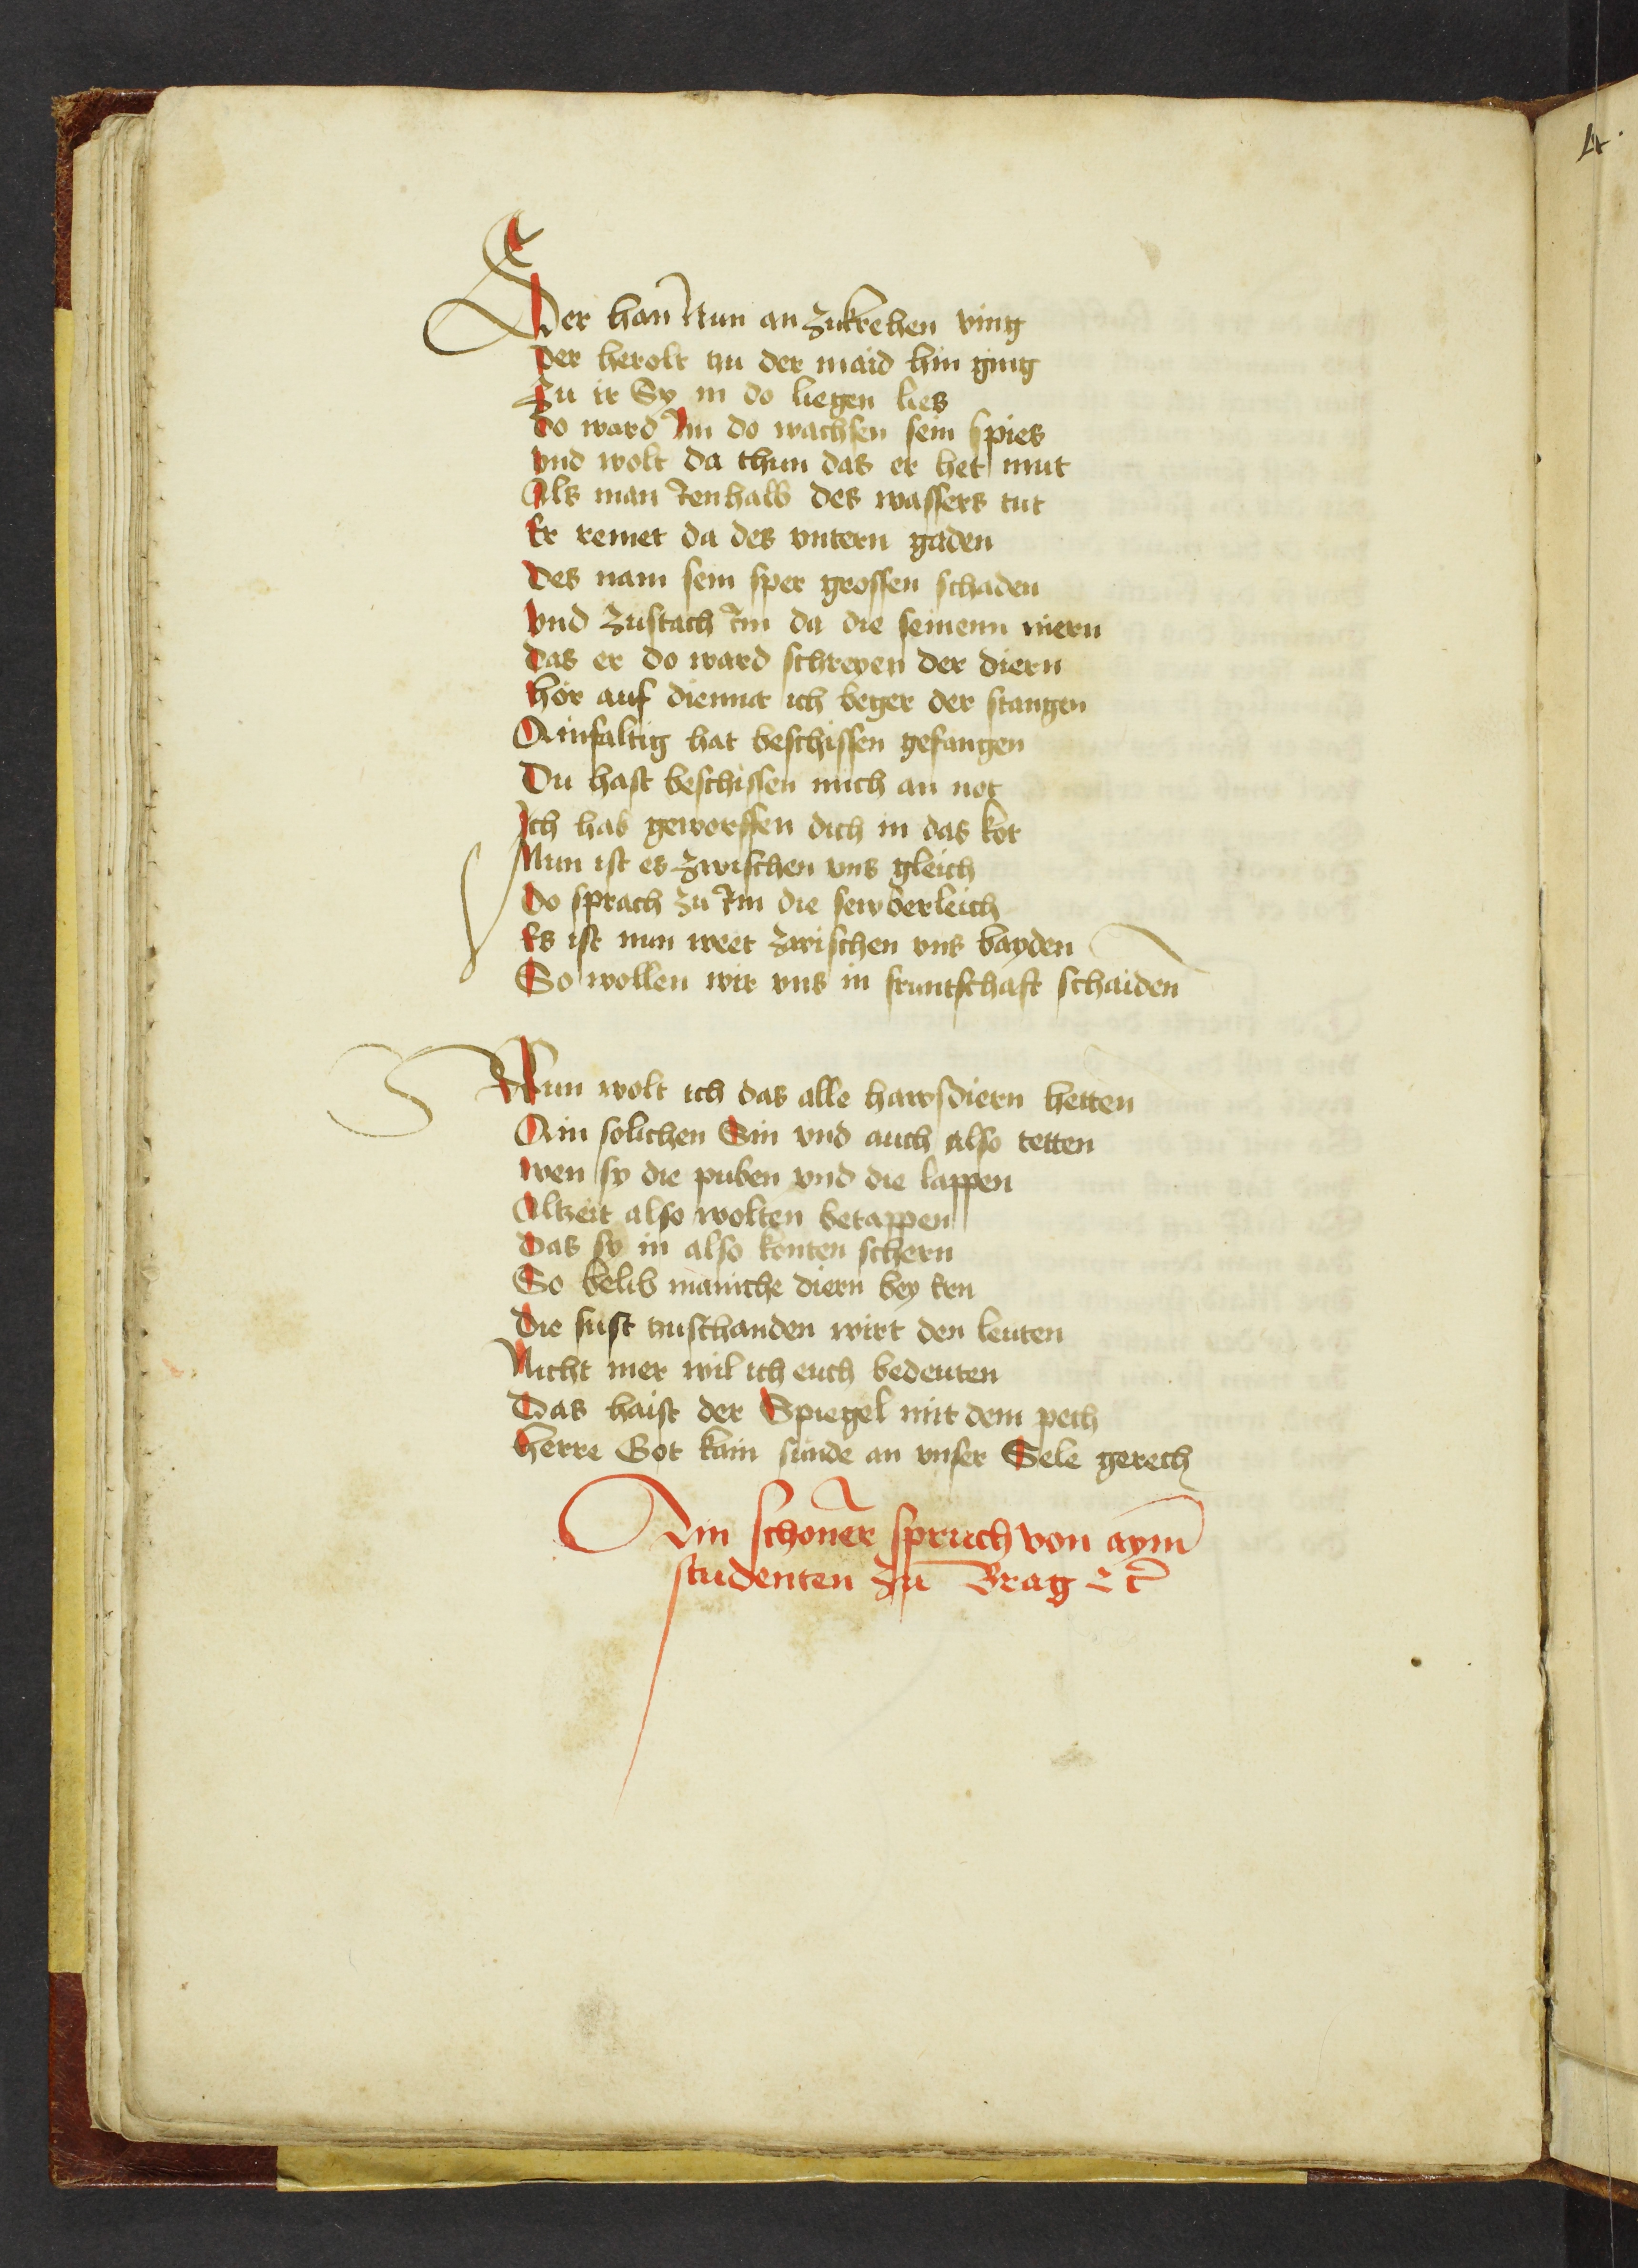 Der han Nun an zukrehen ving
Der herolt zu der maid hin ging
Zu ir Sy in do liegen lies
Do ward Im do wachsen sein spies
vnd wolt da thun das er het mut
Als man Renhalb des wassers tut
Er remet da des vntern gaden
Des nam sein sper grossen schaden
vnd zustach Im da die seinenn niern
Das er do ward schreyen der diern
hör auf diemut ich beger der stangen
Ainfaltig hat beschissen gefangen
Du hast beschissen mich an not
Ich hab geworffen dich in das kot
Nun ist es zwischen vns gleich
Do sprach zu Im die sewberleich
Es ist nun weet zwischen vns bayden
So wollen wir vns in fruntschaft schaiden
Nun wolt ich das alle hawsdiern hetten
Ain solichen Sin vnd auch also tetten
wen sy die puben vnd die lappen
Altzeit also wolten betappen
Das sy in also konten schern
So belib maniche diern bey ern
Die sust zuschanden wirt den leuten
Nicht mer wil ich euch bedeuten
Das haist der Spiegel mit dem pech
herre Got kain sunde an vnser Sele gerech
Ain schoner spruch von aym
studenten zu Brag etc